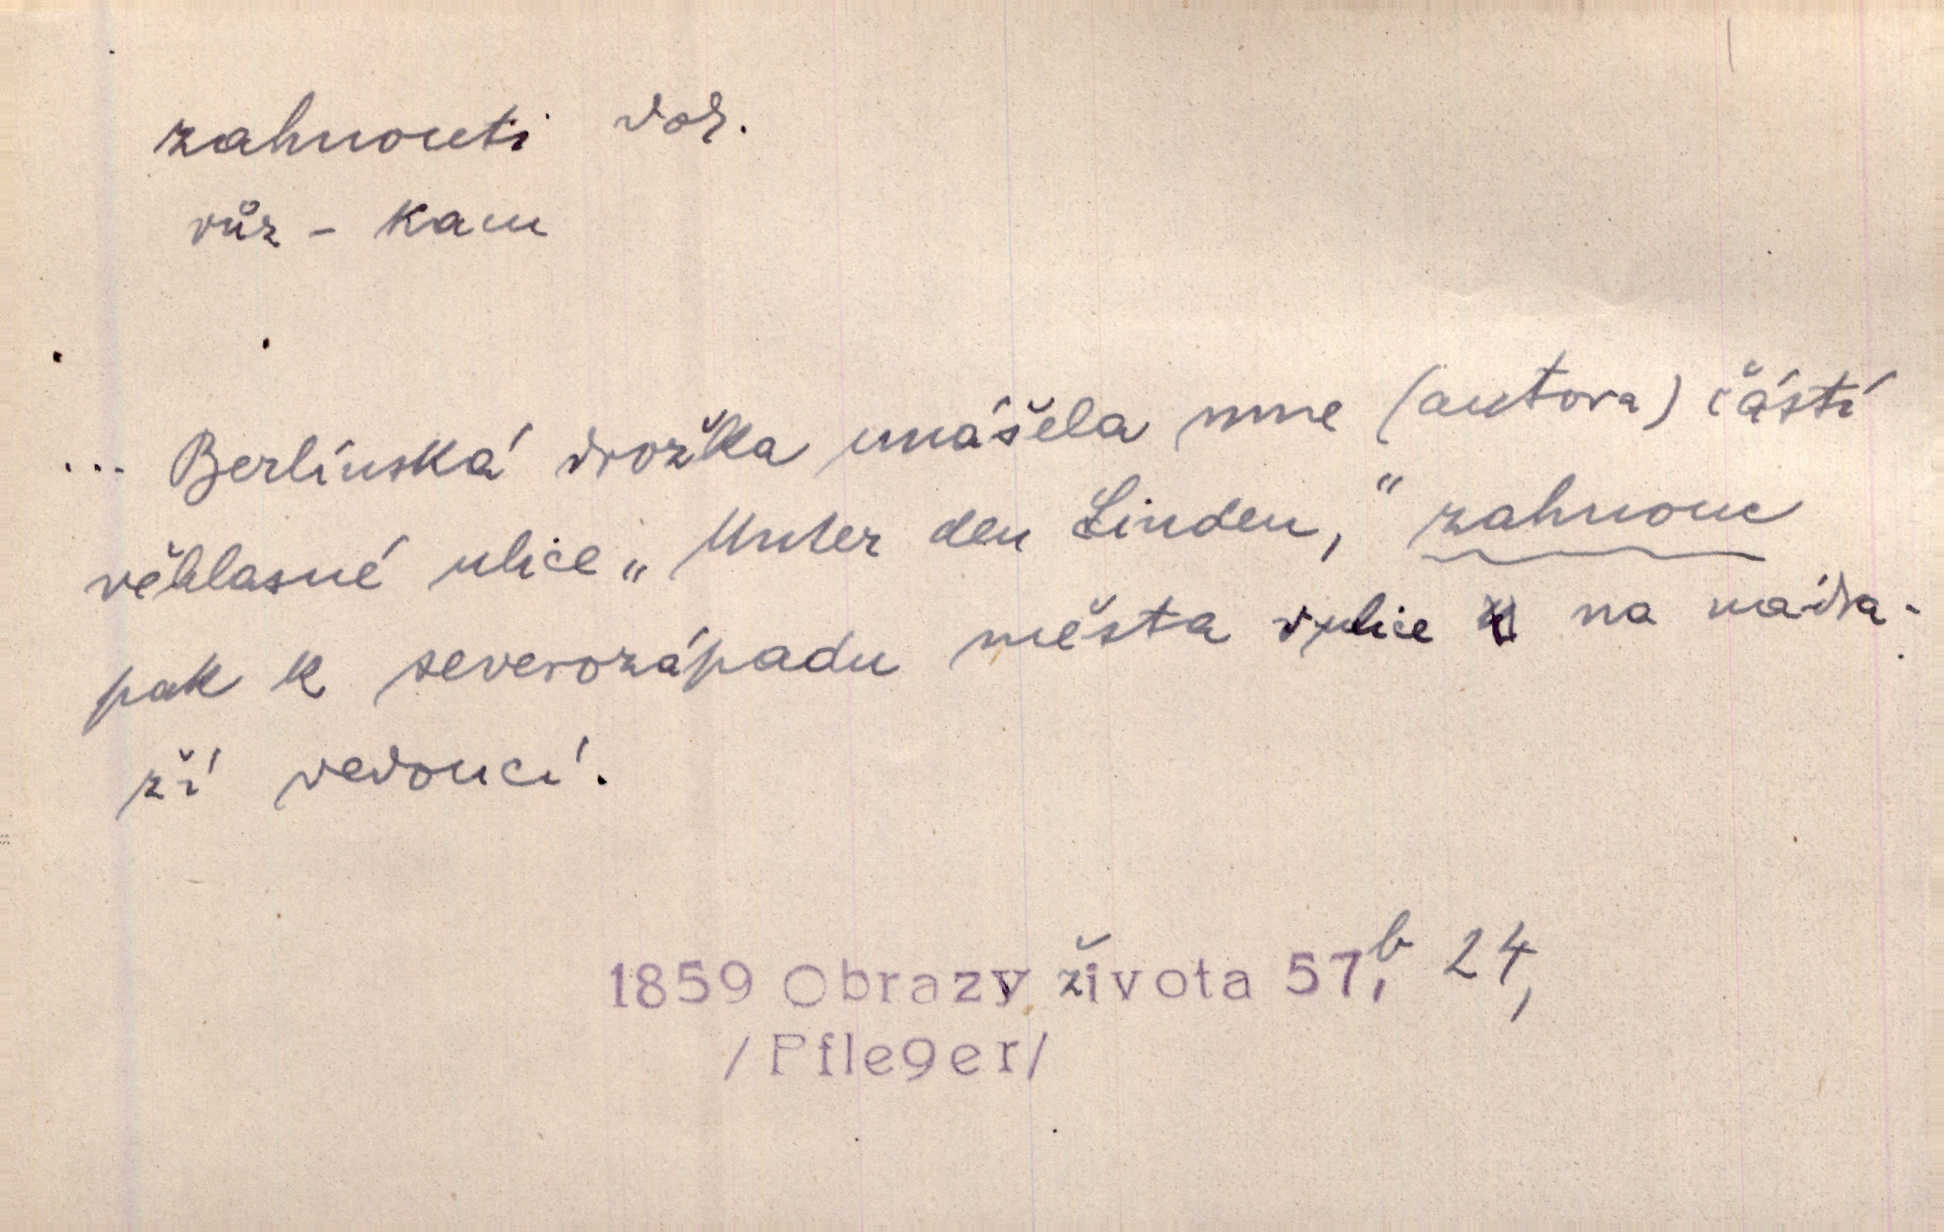 zahnouti dok.
vůz - kam
... Berlínská drožka unášela mne (autora) částí
věhlasné ulice „Unter den Linden,“ zahnouc
pak k severozápadu města v ulice na nádra-
ží vedoucí.
1859 Obrazy života 57,b 24,
/Pfleger/